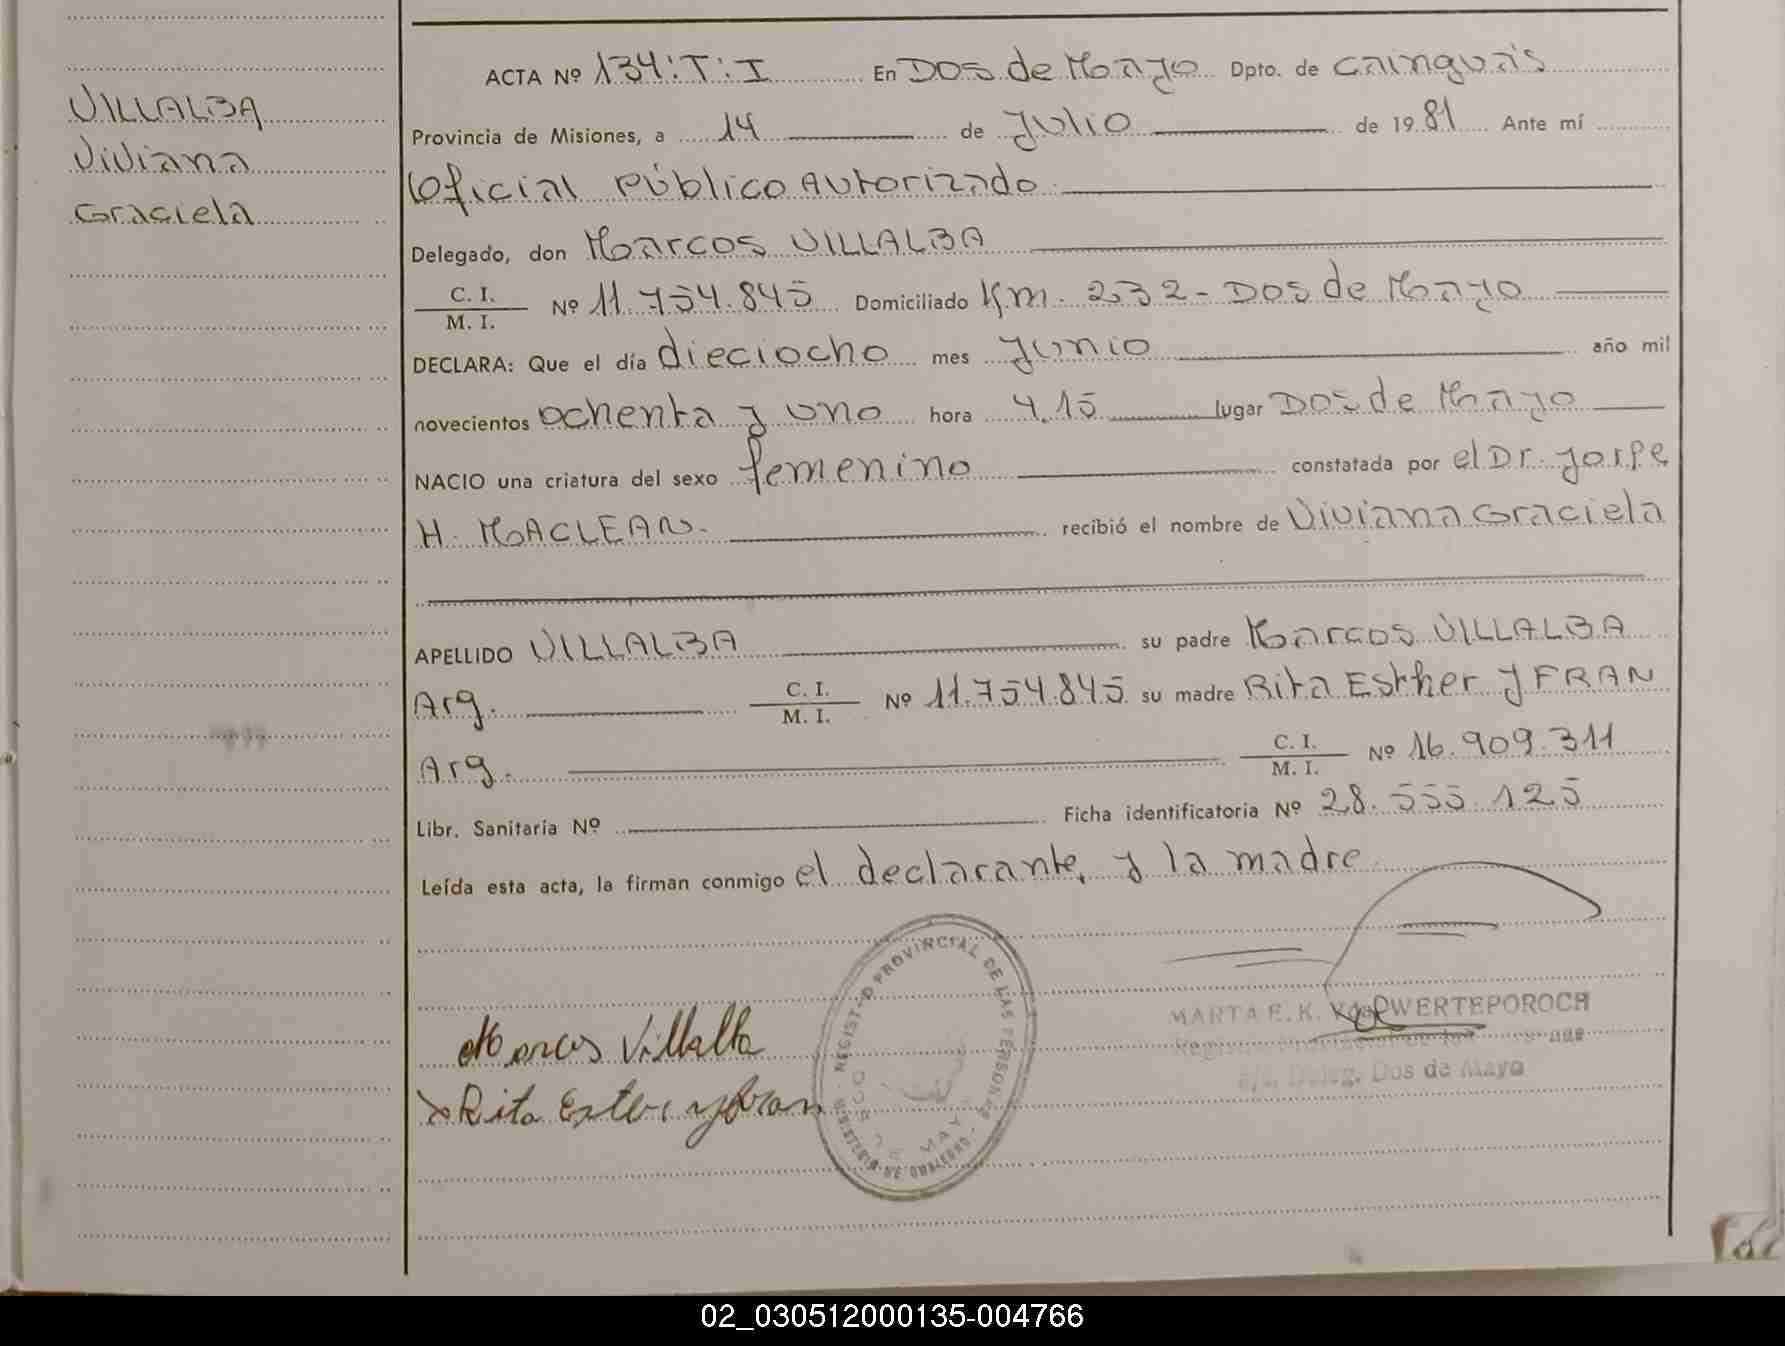 VILLALBA
Viviana
Graciela
ACTA Nº 134:T:I En Dos de Mayo Dpto. de Cainguás
Provincia de Misiones, a 14 de Julio de 1981 Ante mí
Oficial Público Autorizado
Delegado, don Marcos VILLALBA
C. I.
M. I. Nº 11.754.845 Domiciliado Km. 232 - Dos de Mayo
DECLARA: Que el día dieciocho mes Junio año mil
novecientos ochenta y uno hora 4.15 lugar Dos de Mayo
NACIO una criatura del sexo femenino constatada por el Dr. Jorge
H. MACLEAN. recibió el nombre de Viviana Graciela
APELLIDO VILLALBA su padre Marcos VILLALBA
Arg. C. I. M. I. Nº 11.754.845 su madre Rita Esther YFRAN
Arg. C. I. M. I. Nº 16.909.311
Libr. Sanitaria Nº Ficha identificatoria Nº 28.555.125
Leída esta acta, la firman conmigo el declarante, y la madre
Marcos Villalba
Rita Ester yfran
REGISTRO PROVINCIAL DE LAS PERSONAS
MINISTERIO DE GOBIERNO
DOS DE MAYO
MARTA E. K.
Registro Provincial de las Personas
Deleg. Dos de Mayo
02_030512000135-004766